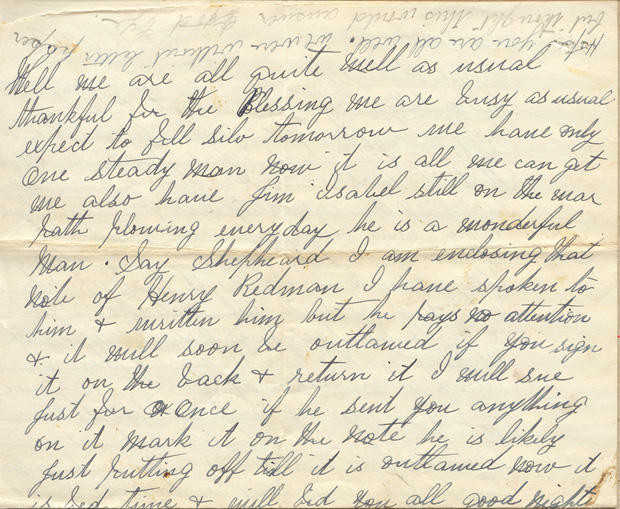 Hope you are all well. we were without better paper
but thought this would answer Good Bye
Well we are all quite well as usual
thankful for the Blessing we are busy as usual
expect to fill silo tomorrow we have only
one steady man now it is all we can get
we also have Jim Isabel still on the war
path plowing everyday he is a wonderful
man. Say Shepheard I am enclosing that
note of Henry Redman I have spoken to
him & written him but he pays no attention
& it will soon be outlawed if you sign
it on the back & return it I will sue
just for once if he sent you anything
on it mark it on the note he is likely
just putting off till it is outlawed now it
is bed time & will bid you all good night